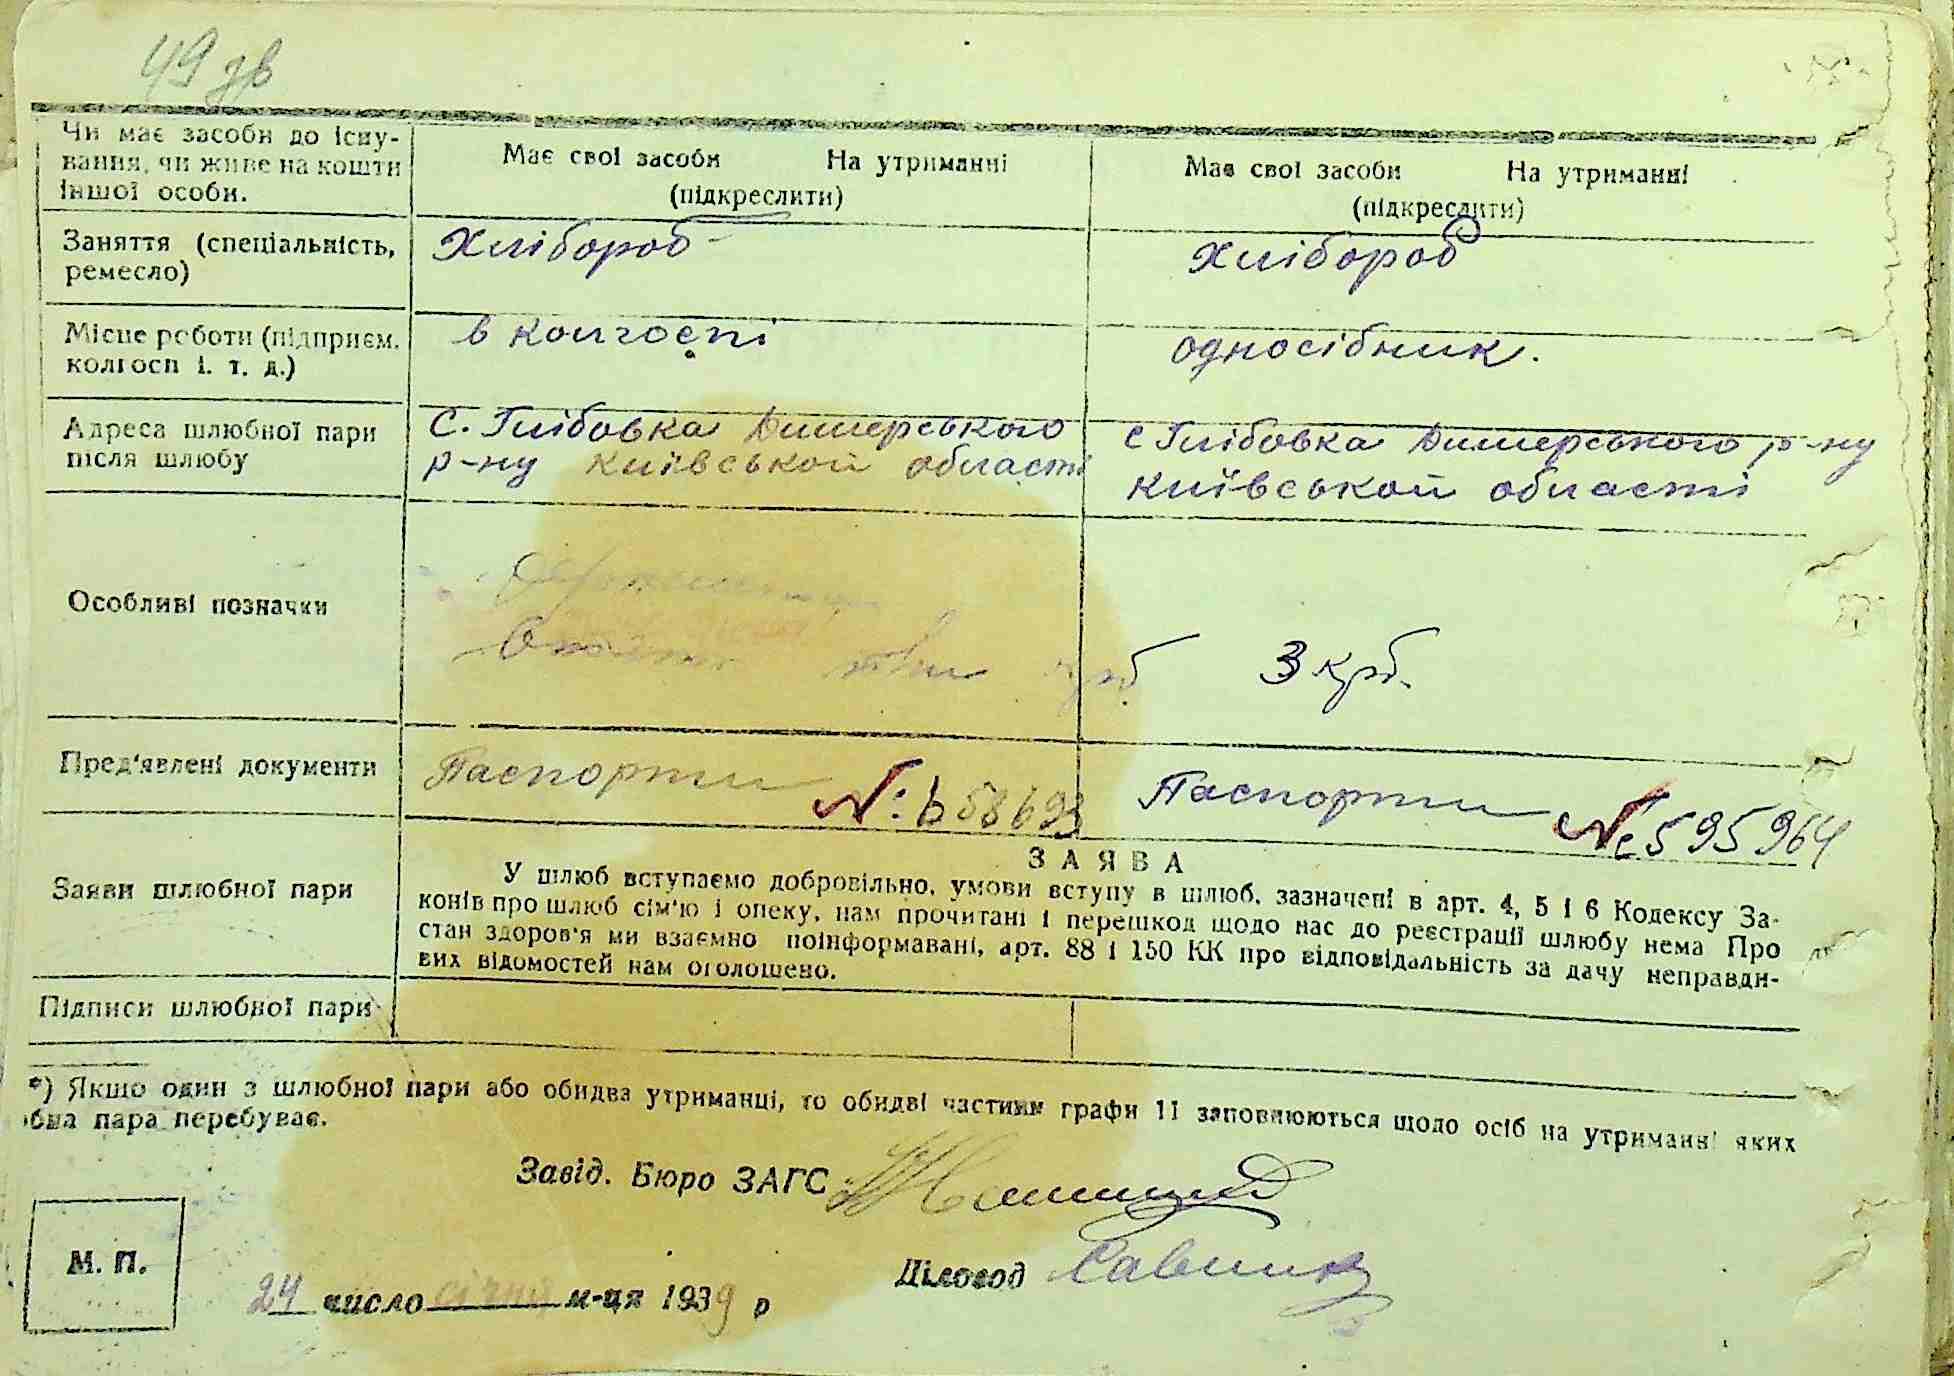 49 зв
Чи має засоби до існу-
вання, чи живе на кошти
іншої особи.
Має свої засоби На утриманні
(підкреслити)
Має свої засоби На утриманні
(підкреслити)
Заняття (спеціальність,
ремесло)
Хлібороб
Хлібороб
Місце роботи (підприєм.
колгосп і. т. д.)
в колгоспі
односібник.
Адреса шлюбної пари
після шлюбу
С. Глібовка Димерського
р-ну київської області
с Глібовка Димерського р-ну
київської області
Особливі позначки
3 крб.
Пред'явлені документи
Паспорти №: 658693
Паспорти № 595964
Заяви шлюбної пари
ЗАЯВА
У шлюб вступаємо добровільно, умови вступу в шлюб, зазначені в арт. 4, 5 і 6 Кодексу За-
конів про шлюб сім'ю і опеку, нам прочитані і перешкод щодо нас до реєстрації шлюбу нема Про
стан здоров'я ми взаємно поінформавані, арт. 88 і 150 КК про відповідальність за дачу неправди-
вих відомостей нам оголошено.
Підписи шлюбної пари
*) Якщо один з шлюбної пари або обидва утриманці, то обидві частини графи 11 заповнюються щодо осіб на утриманні яких
бна пара перебуває.
Завід. Бюро ЗАГС
Діловод
М. П.
24 число січня м-ця 1939 р